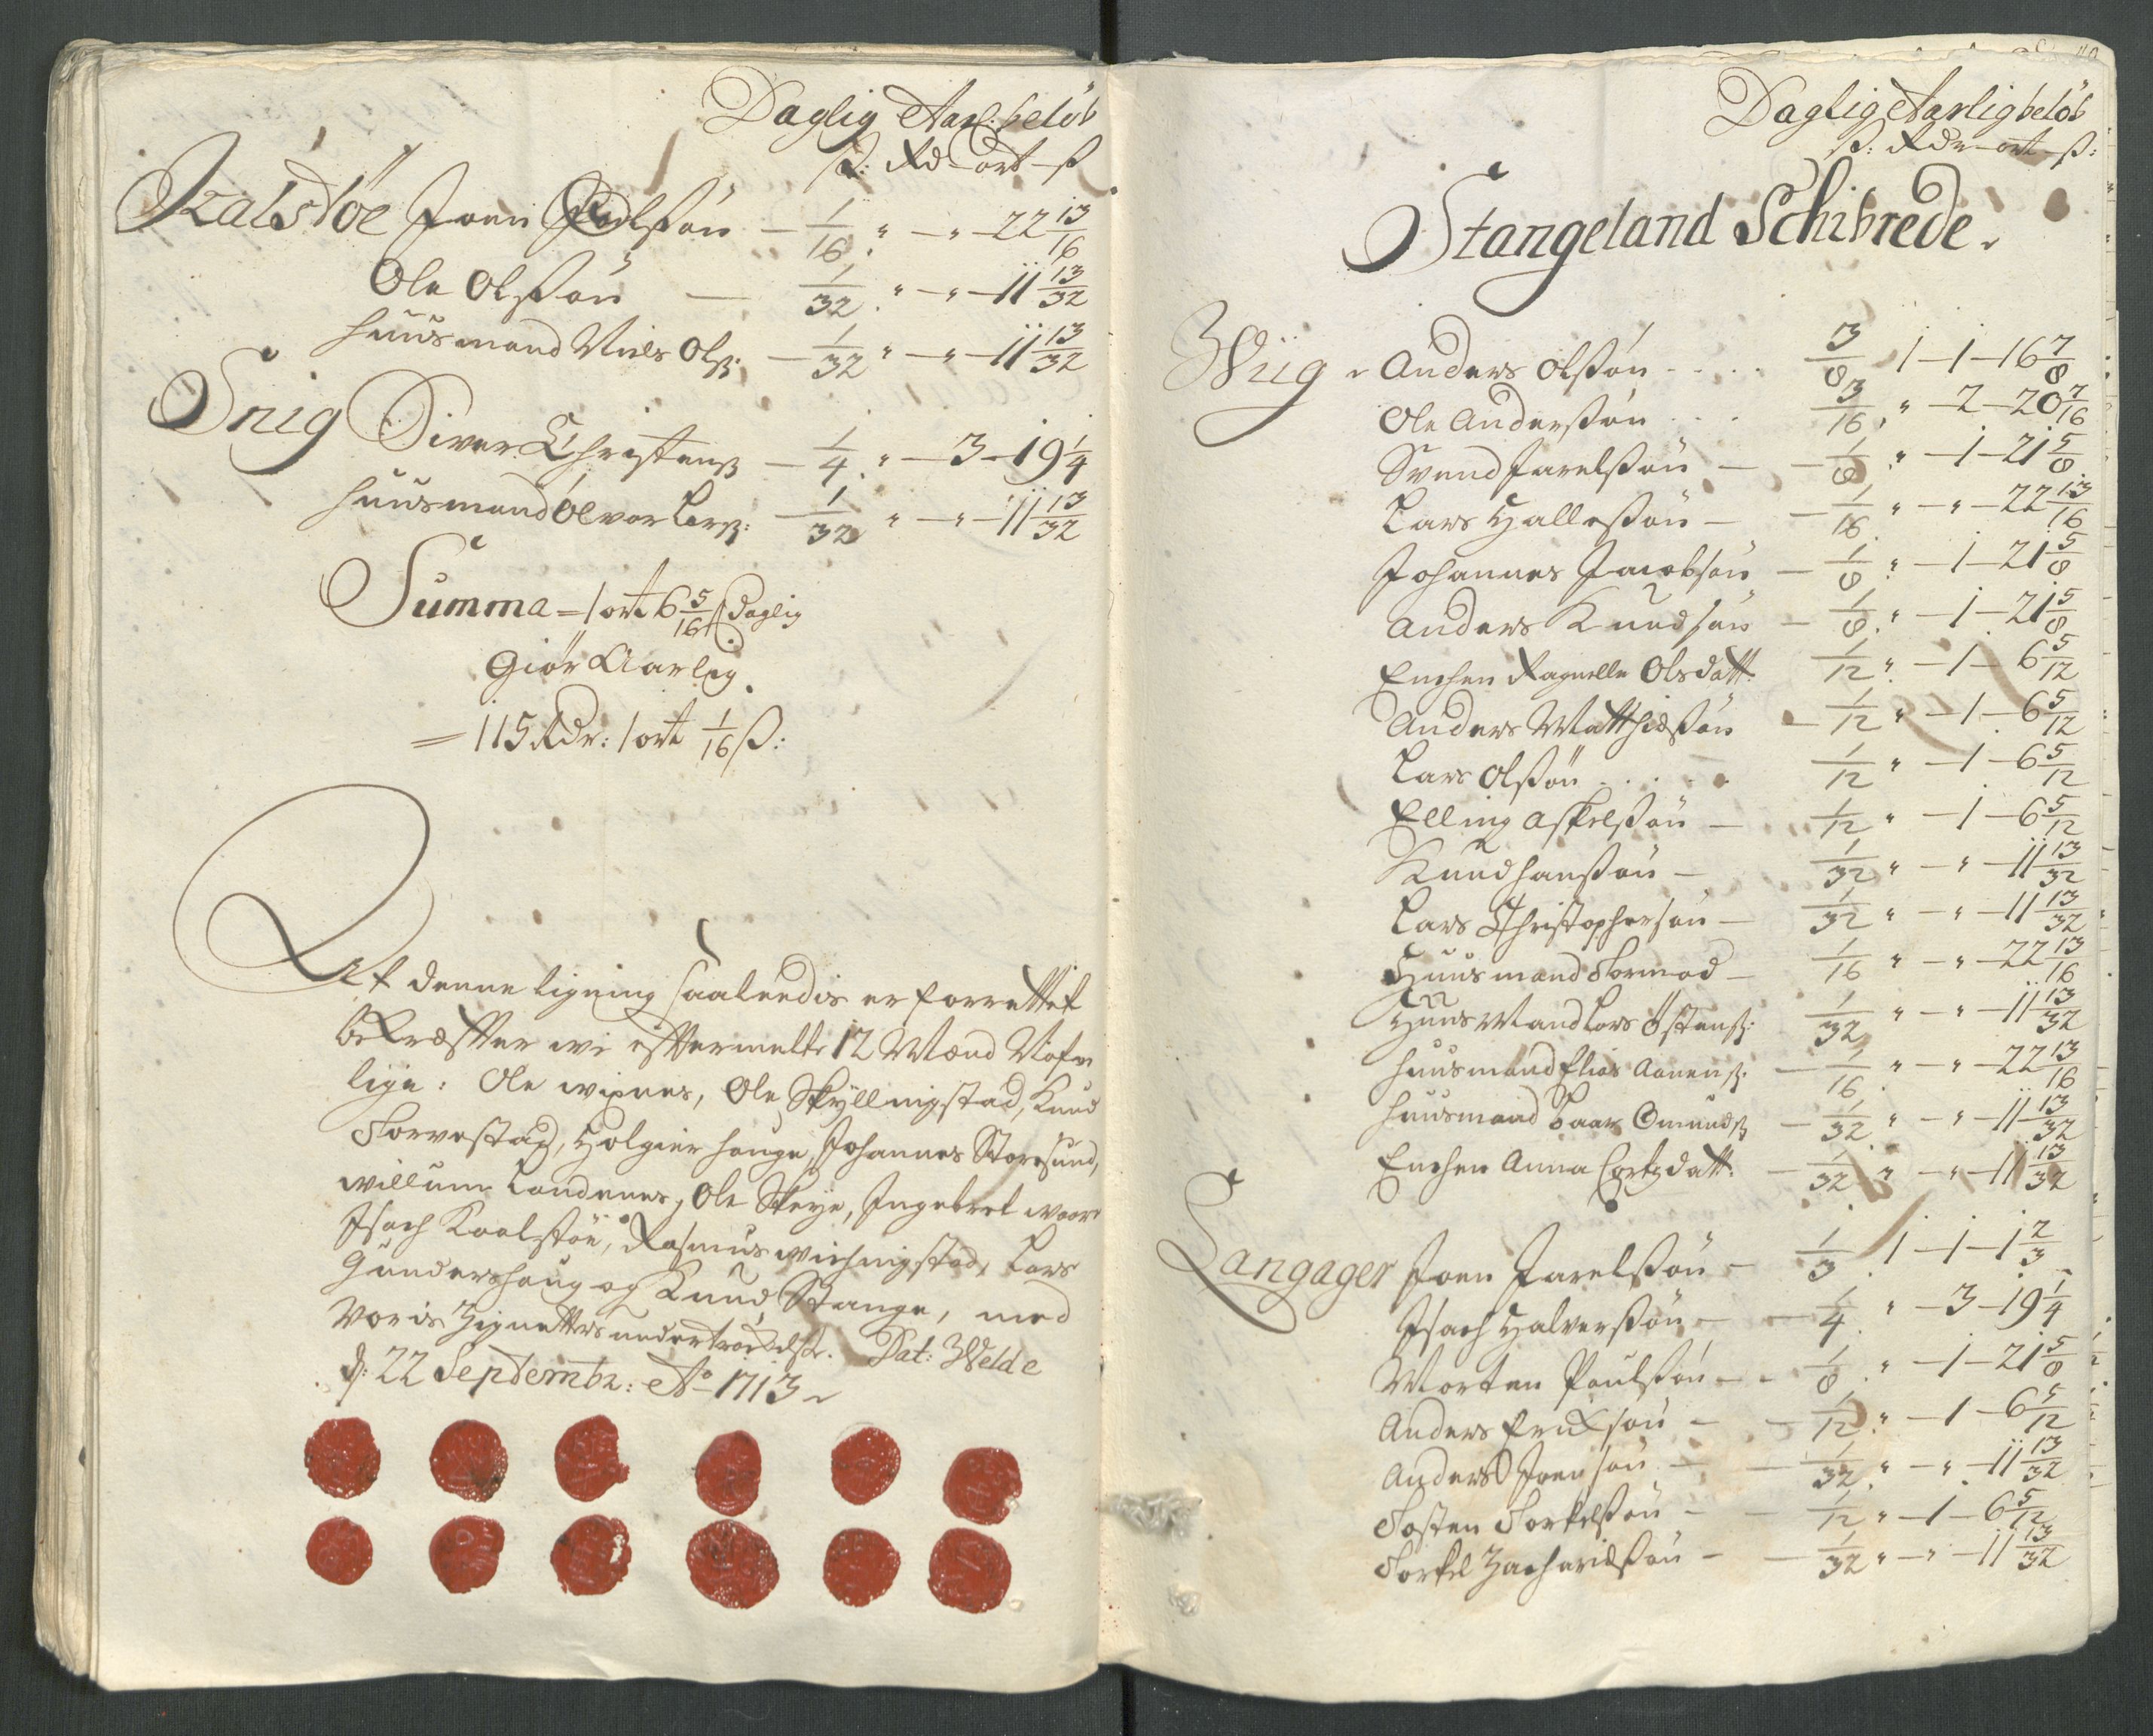 Daglig Aarl: beløb
ß: Rd ort ß
Kalstöe Joen Poulßön — 1/16 " — " — 22 13/16
Ole Olßön — 1/32 " — " — 11 13/32
Huusmand Niels Olß: — 1/32 " — " — 11 13/32
Snig Siver Christenß — 1/4 " — 3 — 19 1/4
Huusmand Olvor Larß: — 1/32 " — " — 11 13/32
Summa = 1 ort 6 5/16 ß daglig
Giör Aarlig
= 115 Rdr: 1 ort 1/16 ß:
At denne ligning saaleedis er forrettet
bekræffter wi efftermelte 12 Mænd Nafn
lige: Ole wixnes, Ole Skÿllingstad, Knud
Torvestag, Holgier hauge, Johannes Storesund,
willum Landenes, Ole Skeye, Ingebret waare
Isach Kaalstöe, Rasmus wichingstad, Lars
Gundershaug og Knud Stange, med
Voris Zignetters undertrÿckelße. Dat: Welde
d: 22 Septembr: Ao 1713
Daglig Aarlig beløb
ß: Rdr ort ß:
Stangeland Schibrede
Wiig Anders Olßön .... 3/8 1 — 1 — 16 7/8
Ole Anderßön ... 3/16 " — 2 — 20 7/16
Svend Jarelßön — 1/8 " — 1 — 21 5/8
Lars Halleßön — 1/16 " — " — 22 13/16
Johannes Jacobsön — 1/8 " — 1 — 21 5/8
Anders Knudsön — 1/8 " — 1 — 21 5/8
Enchen Ragnelle Olsdatt: 1/12 " — 1 — 6 5/12
Anders Matthisßön — 1/12 " — 1 — 6 5/12
Lars Olßön ..... 1/12 " — 1 — 6 5/12
Elling Askelßön — 1/12 " — 1 — 6 5/12
Knud Hanßön — 1/32 " — " — 11 13/32
Lars Christophersön — 1/32 " — " — 11 13/32
Huusmand Tormod — 1/16 " — " — 22 13/16
Huus Mand Lars Östenß: 1/32 " — " — 11 13/32
Huusmand Elias Aanenß: — 1/16 " — " — 22 13/16
Huusmand Baar Omundß — 1/32 " — " — 11 13/32
Enchen Anna Cortzdatt: — 1/32 " — " — 11 13/32
Langager Joen Jarelßön — 1/3 1 — 1 — 1 2/3
Isach Halverßön — 1/4 " — 3 — 19 1/4
Morten Poulßön — 1/8 " — 1 — 21 5/8
Anders Ericksön — 1/12 " — 1 — 6 5/12
Anders Joensön — 1/32 " — " — 11 13/32
Tosten Torkelßön — 1/12 " — 1 — 6 5/12
Torkel Zacharisßön — 1/32 " — " — 11 13/32